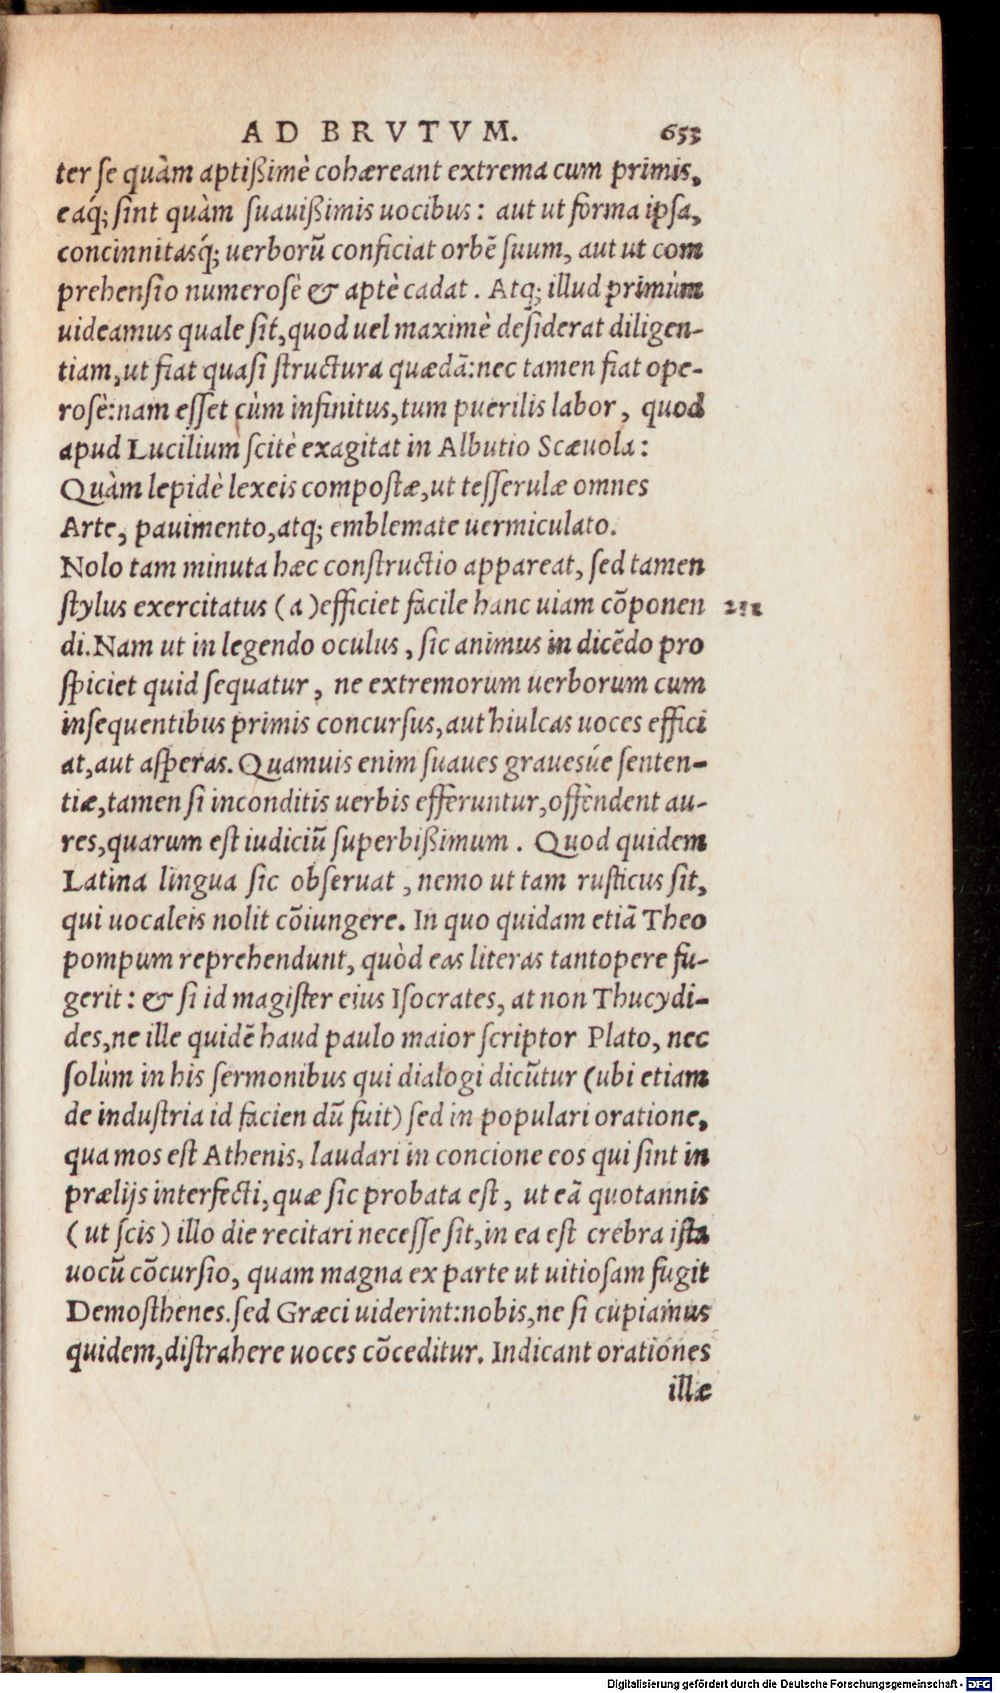 AD BRVTVM. 653
ter se quàm aptißimè cohæreant extrema cum primis,
eaq́; sint quàm suauißimis uocibus: aut ut forma ipsa,
concinnitasq́; uerborũ conficiat orbẽ suum, aut ut com
prehensio numerosè & aptè cadat. Atq; illud primùm
uideamus quale sit, quod uel maximè desiderat diligen-
tiam, ut fiat quasi structura quædã: nec tamen fiat ope-
rosè: nam esset cùm infinitus, tum puerilis labor, quod
apud Lucilium scitè exagitat in Albutio Scæuola:
Quàm lepidè lexeis compostæ, ut tesserulæ omnes
Arte, pauimento, atq; emblemate uermiculato.
Nolo tam minuta hæc constructio appareat, sed tamen
stylus exercitatus (a) efficiet facile hanc uiam cõponen
di. Nam ut in legendo oculus, sic animus in dicẽdo pro
spiciet quid sequatur, ne extremorum uerborum cum
insequentibus primis concursus, aut hiulcas uoces effici
at, aut asperas. Quamuis enim suaues grauesúe senten-
tiæ, tamen si inconditis uerbis efferuntur, offendent au-
res, quarum est iudiciũ superbißimum. Quod quidem
Latina lingua sic obseruat, nemo ut tam rusticus sit,
qui uocaleis nolit cõiungere. In quo quidam etiã Theo
pompum reprehendunt, quòd eas literas tantopere fu-
gerit: & si id magister eius Isocrates, at non Thucydi-
des, ne ille quidẽ haud paulo maior scriptor Plato, nec
solùm in his sermonibus qui dialogi dicũtur (ubi etiam
de industria id facien dũ fuit) sed in populari oratione,
qua mos est Athenis, laudari in concione eos qui sint in
prælijs interfecti, quæ sic probata est, ut eã quotannis
(ut scis) illo die recitari necesse sit, in ea est crebra ista
uocũ cõcursio, quam magna ex parte ut uitiosam fugit
Demosthenes. sed Græci uiderint: nobis, ne si cupiamus
quidem, distrahere uoces cõceditur. Indicant orationes
illæ
Digitalisierung gefördert durch die Deutsche Forschungsgemeinschaft - DFG